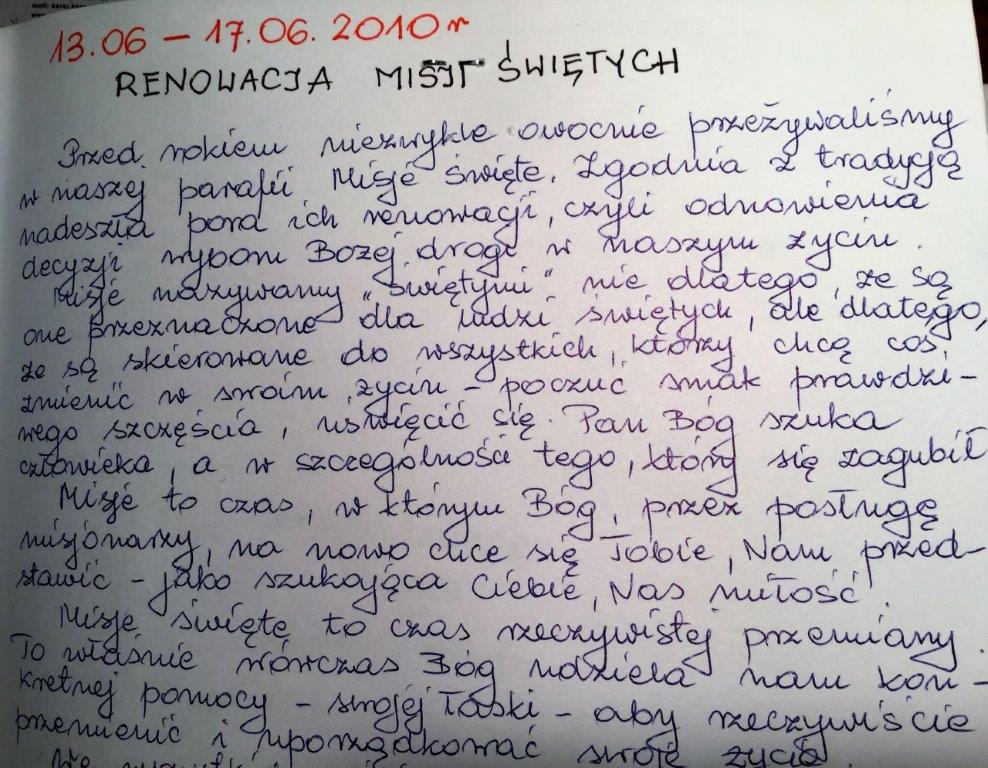 13.06 – 17.06. 2010 r
RENOWACJA MISJI ŚWIĘTYCH
Przed rokiem niezwykle owocnie przeżywaliśmy
w naszej parafii Misje święte. Zgodnia z tradycją
nadeszła pora ich renowacji, czyli odnowienia
decyzji wyboru Bożej drogi w naszym życiu.
Misje nazywamy „świętymi" nie dlatego, że są
one przeznaczone dla ludzi świętych, ale dlatego,
że są skierowane do wszystkich, którzy chcą coś
zmienić w swoim życiu – poczuć smak prawdzi-
wego szczęścia, uświęcić się. Pan Bóg szuka
człowieka, a w szczególności tego, który się zagubił
Misje to czas, w którym Bóg, przez posługę
misjonarzy, na nowo chce się Tobie, Nam przed-
stawić – jako szukająca Ciebie, Nas miłość.
Misje święte to czas rzeczywistej przemiany.
To właśnie wówczas Bóg udziela nam kon-
kretnej pomocy – swojej Łaski – aby rzeczywiście
przemienić i uporządkować swoje życie.